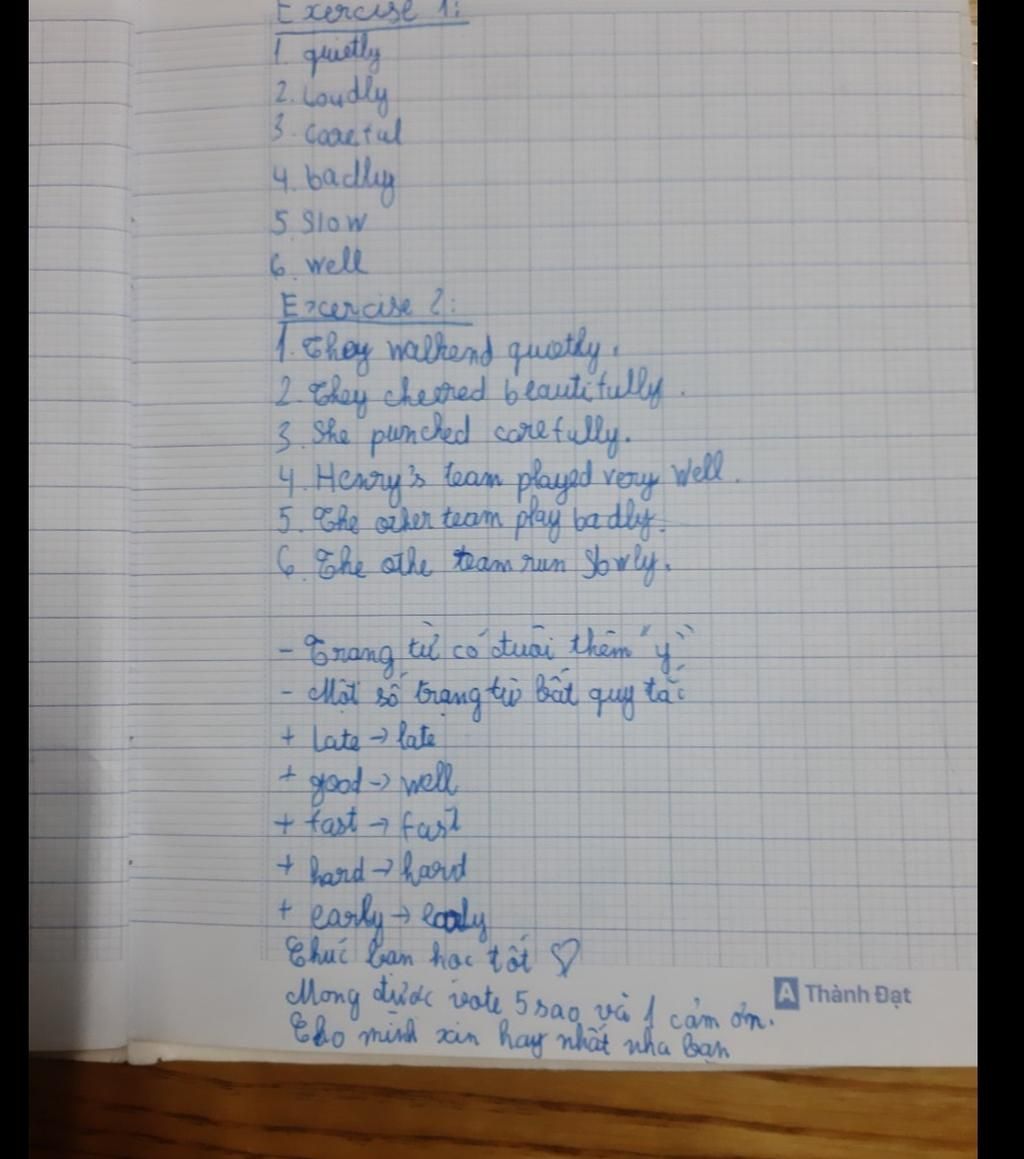 Exercise 1:
1. quietly
2. Loudly
3. Careful
4. badly
5 Slow
6. well
Excercise 2:
1. They walkend quietly.
2. They cheered beautifully.
3. She punched carefully.
4. Henry's team played very well.
5. The other team play badly.
6. The othe team run slowly.
- Trang từ có đuôi thêm "y"
- Một số trạng từ bất quy tắc
+ Late → late
+ good → well
+ fast → fast
+ hard → hard
+ early → early
Chúc bạn học tốt ♡
Mong được vote 5 sao và 1 cảm ơn.
Cho mình xin hay nhất nha bạn
A Thành Đạt